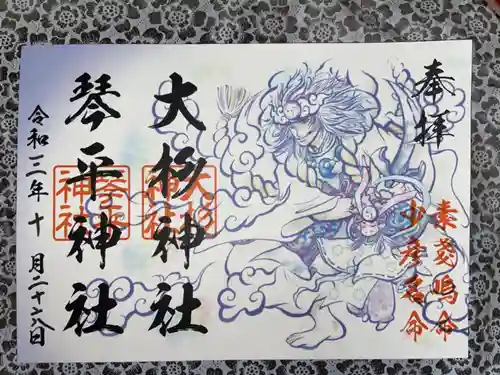 奉拝
素戔嗚命
少彦名命
大杉神社
琴平神社
令和三年十月二十六日
琴平神社